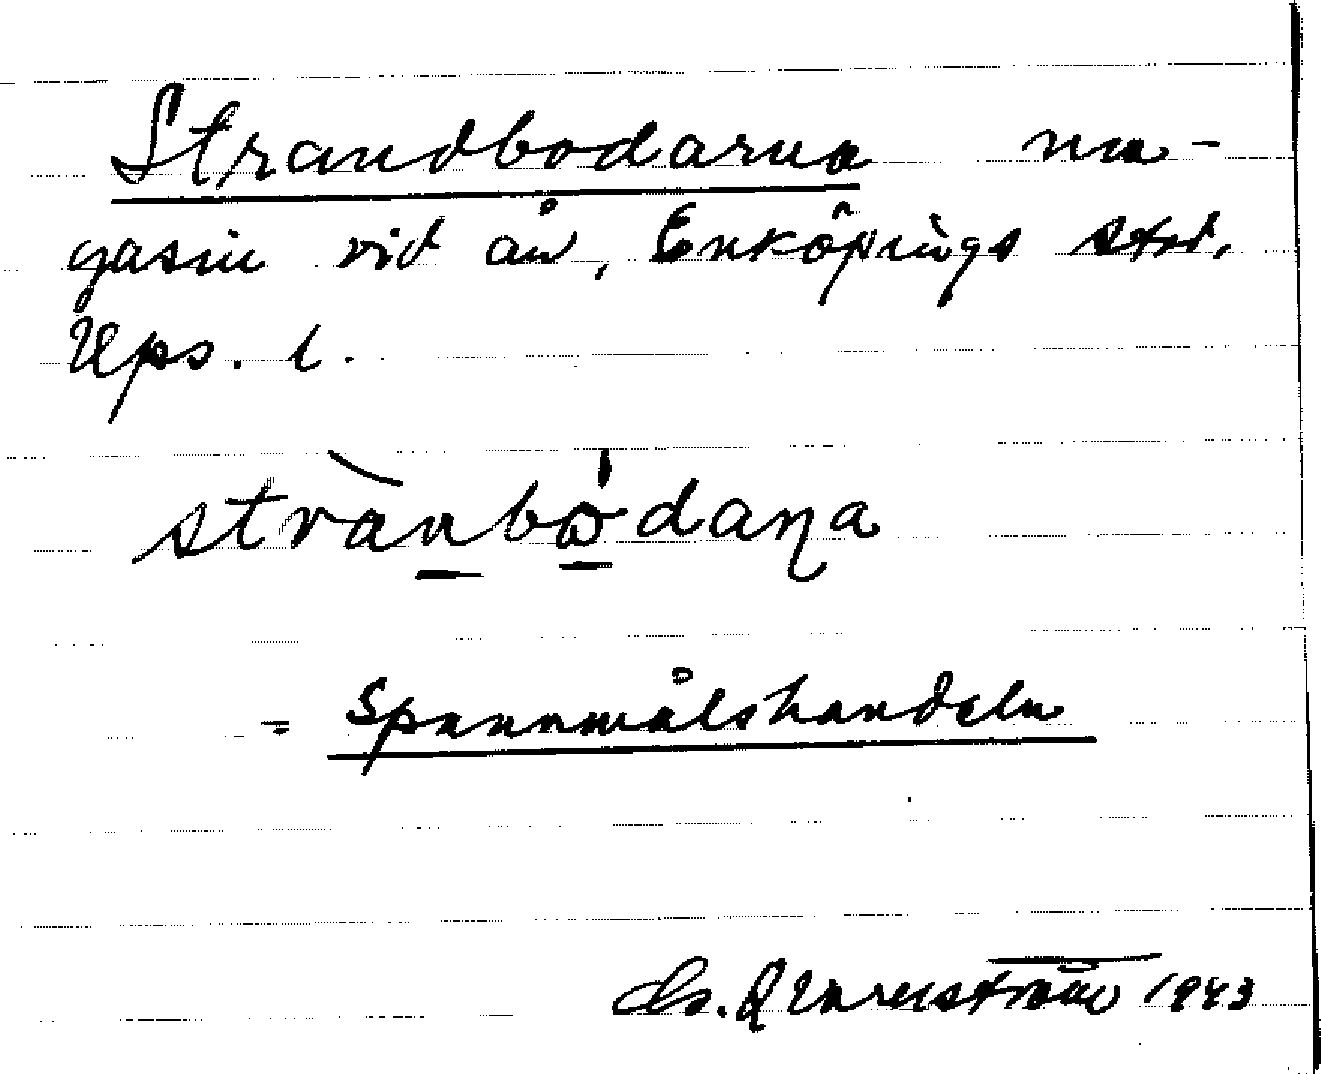 Strandbodarna ma-
gasin vid ån, Enköpings stad,
Ups. l.
strànbωdaꞃa
= Spannmålshandeln
1943